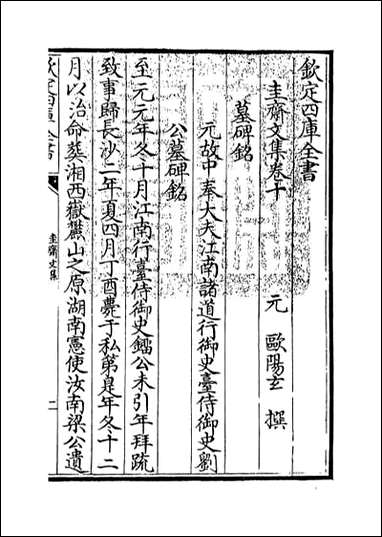 欽定四庫全書
圭齋文集卷十
元 歐陽玄 撰
墓碑銘
元故中奉大夫江南諸道行御史臺侍御史劉
公墓碑銘
至元元年冬十月江南行臺侍御史鐂公未引年拜疏
致事歸長沙二年夏四月丁酉薨于私第是年冬十二
月以治命葬湘西嶽麓山之原湖南憲使汝南梁公遺
欽定四庫全書
圭齋文集